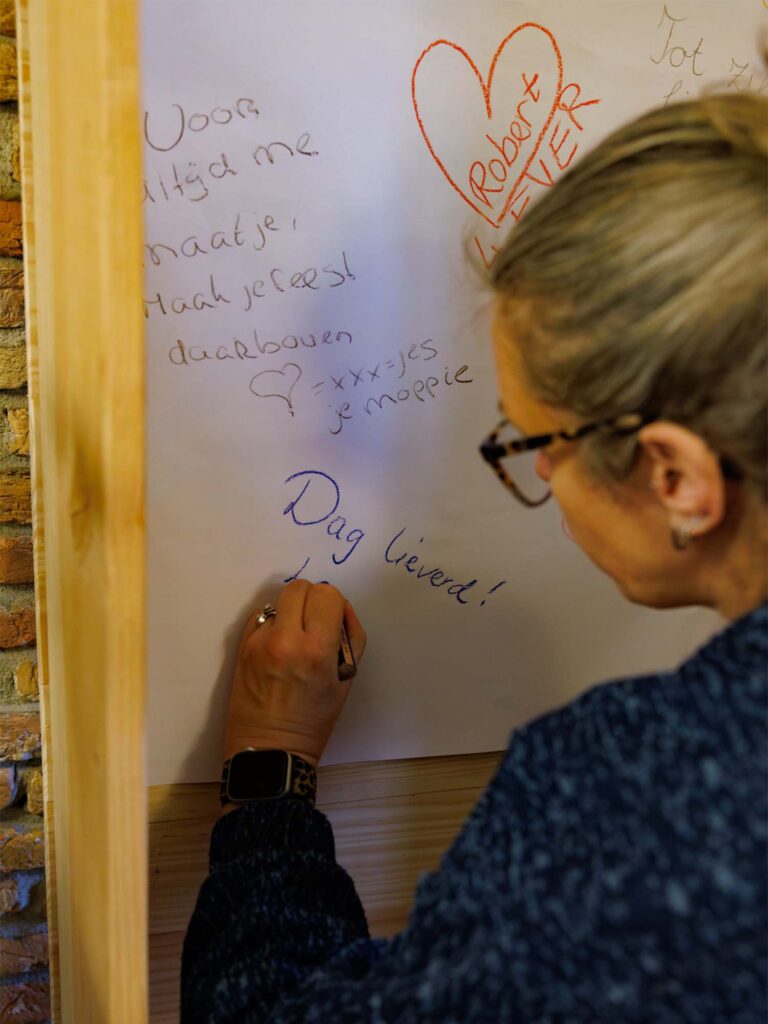 Voor
altijd me
maatje,
Maak je feest
daarboven
♡ = xxx = jes
je moppie
Robert
4 EVER
Tot
Dag lieverd!